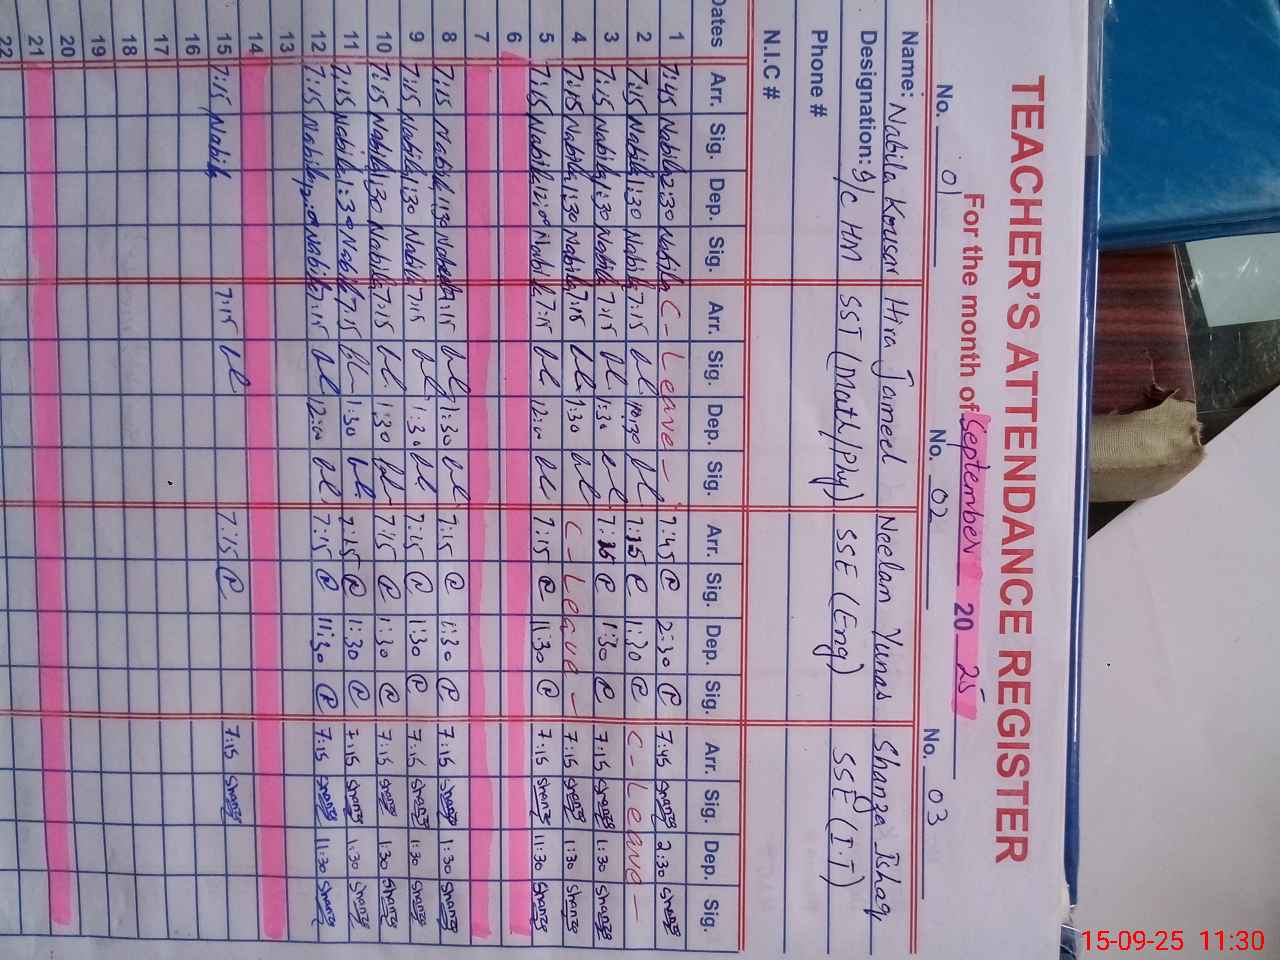 TEACHER'S ATTENDANCE REGISTER
For the month of September 20 25
No. 01 No. 02 No. 03
Name: Nabila Kousar Hira Jameel Neelam Yunas Shanza Ishaq
Designation: I/C HM SST (Math/Phy) SSE (Eng) SSE (I.T)
Phone #
N.I.C #
Dates Arr. Sig. Dep. Sig. Arr. Sig. Dep. Sig. Arr. Sig. Dep. Sig. Arr. Sig. Dep. Sig.
1 7:45 Nabila 2:30 Nabila C - Leave - 7:45 2:30 7:45 Shanza 2:30 Shanza
2 7:15 Nabila 1:30 Nabila 7:15 10:30 1:30 C - Leave -
3 7:15 Nabila 1:30 Nabila 7:15 1:30 1:30 7:15 Shanza 1:30 Shanza
4 7:15 Nabila 1:30 Nabila 7:15 1:30 C - Leave - 7:15 Shanza 1:30 Shanza
5 7:15 Nabila 12:00 Nabila 7:15 12:00 7:15 11:30 7:15 Shanza 11:30 Shanza
6
7
8 7:15 Nabila 1:30 Nabila 7:15 1:30 7:15 1:30 7:15 Shanza 1:30 Shanza
9 7:15 Nabila 1:30 Nabila 7:15 1:30 7:15 1:30 7:15 Shanza 1:30 Shanza
10 7:15 Nabila 1:30 Nabila 7:15 1:30 7:15 1:30 7:15 Shanza 1:30 Shanza
11 7:15 Nabila 1:30 Nabila 7:15 1:30 7:15 1:30 7:15 Shanza 1:30 Shanza
12 7:15 Nabila 12:00 Nabila 7:15 12:00 7:15 11:30 7:15 Shanza 11:30 Shanza
13
14
15 7:15 Nabila 7:15 7:15 7:15 Shanza
16
17
18
19
20
21
22
15-09-25 11:30